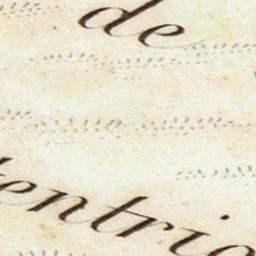 de
tentrio